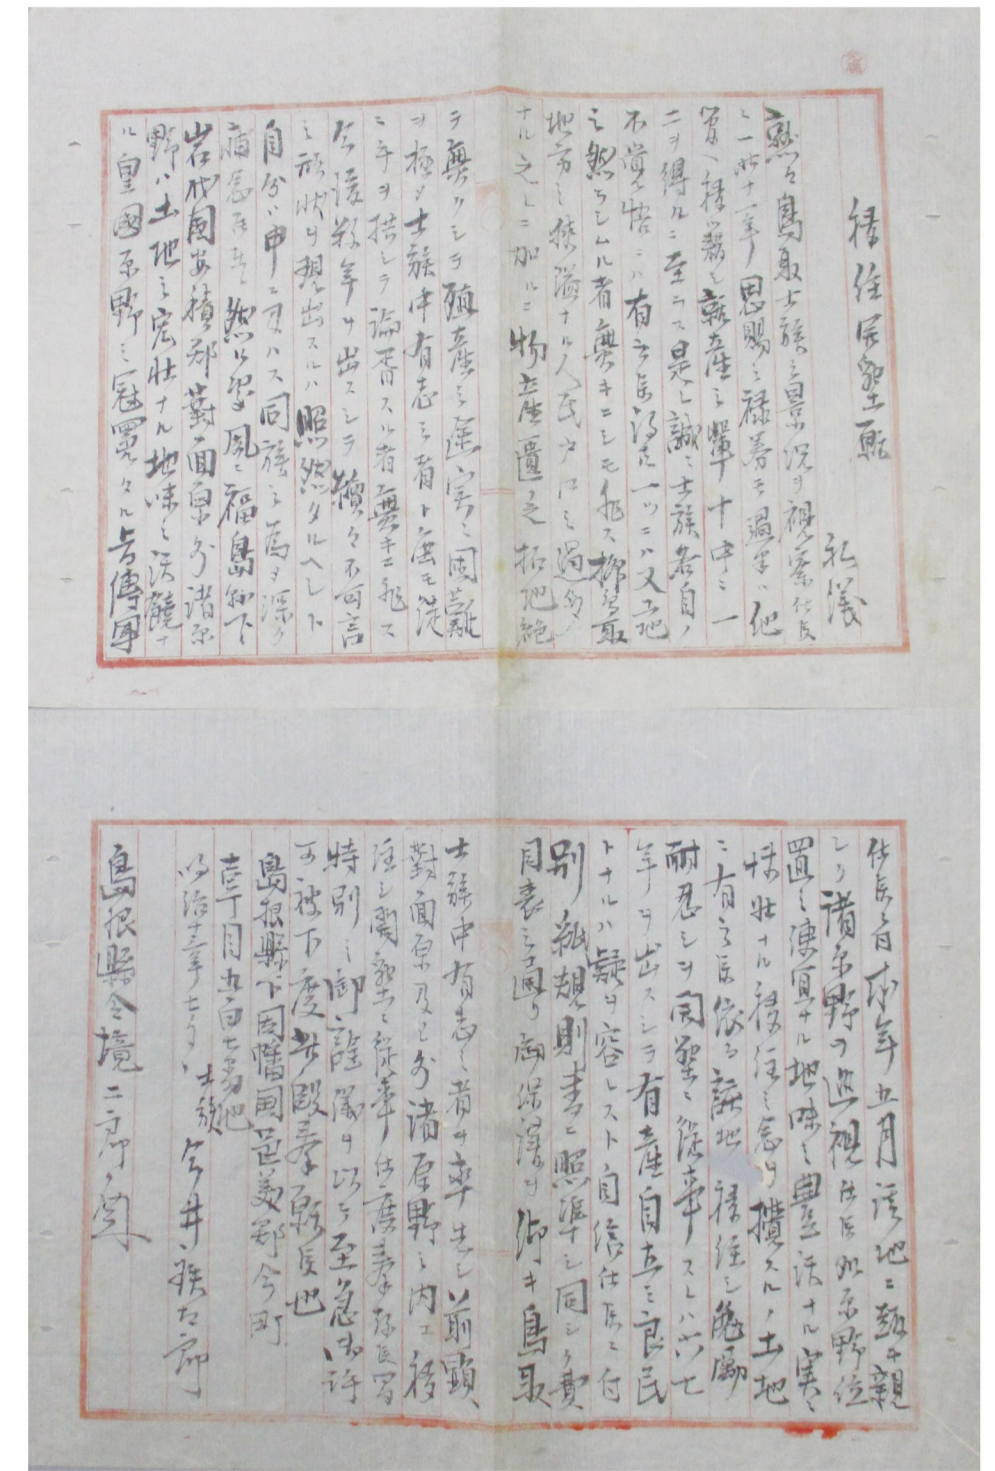 移住開墾願
私儀
熟々鳥取士族之景況ヲ視察仕候
ニ一昨十一年恩賜之禄券モ過半ハ他
ニヲ得ルニ至ラス是レ誠ニ士族各自ノ
不覚悟ニハ有之候得共一ツニハ又土地
之然ラシムル者無キニシモ非ス抑鳥取
地方之狭隘ナル人民戸口之過多
ナル之レニ加ルニ物産匱乏拓地絶
テ無クシテ殖産之途実ニ困難
ヲ極メ士族中有志之者ト雖モ徒
ニ手ヲ拱シテ論居スル者無キニ非ス
今後数年ヲ出スシテ續々不可言
之形状ヲ現出スルハ照然タルヘシト
自分ハ申ニ及ハス同族之為ヲ深ク
痛念罷在候然ル処夙ニ福島縣下
岩代國安積郡對面原外諸原
野ハ土地之宏壮ナル地味之沃饒ナ
ル皇國原野之冠冕タル旨傳聞
仕候ニ付本年五月該地ニ趣キ親
シク諸原野ヲ巡視仕候処原野位
置之凍冱ナル地味之豊沃ナル実ニ
快壮ナル移住之念ヲ攬クルノ土地
ニ有之候依而該地ヘ移住シ勉励
耐忍シヲ開墾ニ従事スレハ六七
年ヲ出スシテ有産自立之良民
トナルハ疑ヲ容レスト自信仕候ニ付
別紙規則書ニ照準シ同シク費
目表之圖リ御保護ヲ仰キ鳥取
士族中有志之者ヲ率先シ前顕
對面原及ヒ外諸原野之内エ移
住シ開墾ニ従事仕度奉存候間
特別之御詮議ヲ以テ至急御許
可被下度此段奉願候也
島根縣下因幡國邑美郡今町
壱丁目五百七番地
明治十三年七月 士族 今井鉄太郎
島根縣令境二郎殿